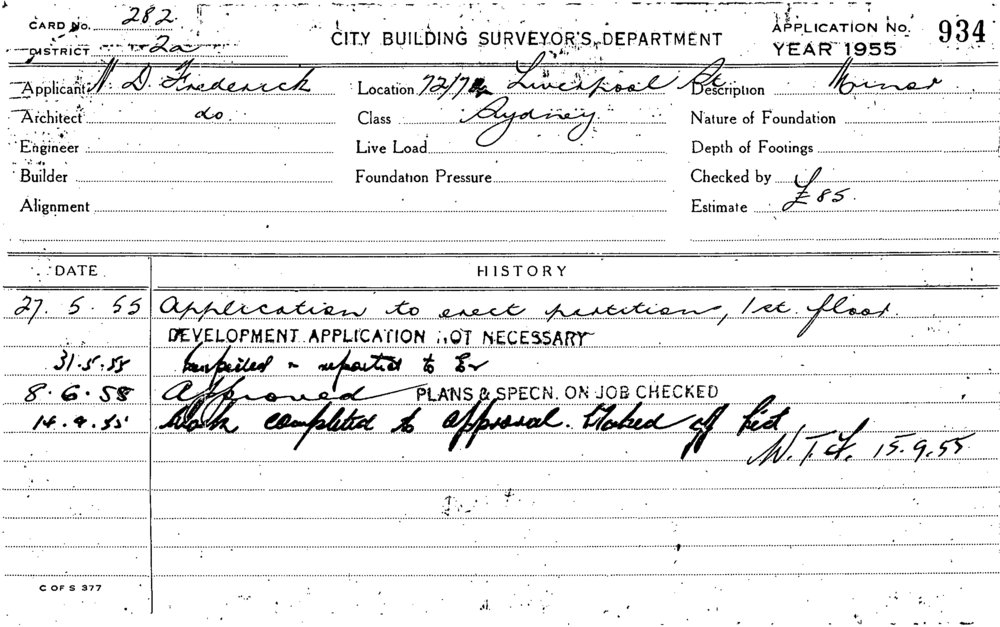 CARD No. 282
DISTRICT 2a
CITY BUILDING SURVEYOR'S DEPARTMENT
APPLICATION No. 934
YEAR 1955
Applicant N. D. Frederick Location 72/7 Liverpool St Description Minor
Architect do Class Sydney Nature of Foundation
Engineer Live Load Depth of Footings
Builder Foundation Pressure Checked by
Alignment Estimate £85.
DATE HISTORY
27. 5. 55 Application to erect partition, 1st. floor
DEVELOPMENT APPLICATION NOT NECESSARY
31.5.55 Inspected & reported to
8. 6. 55 Approved PLANS & SPECN. ON JOB CHECKED
14. 9. 55 Work completed to approval. Marked off list
15.9.55
C OF S 377